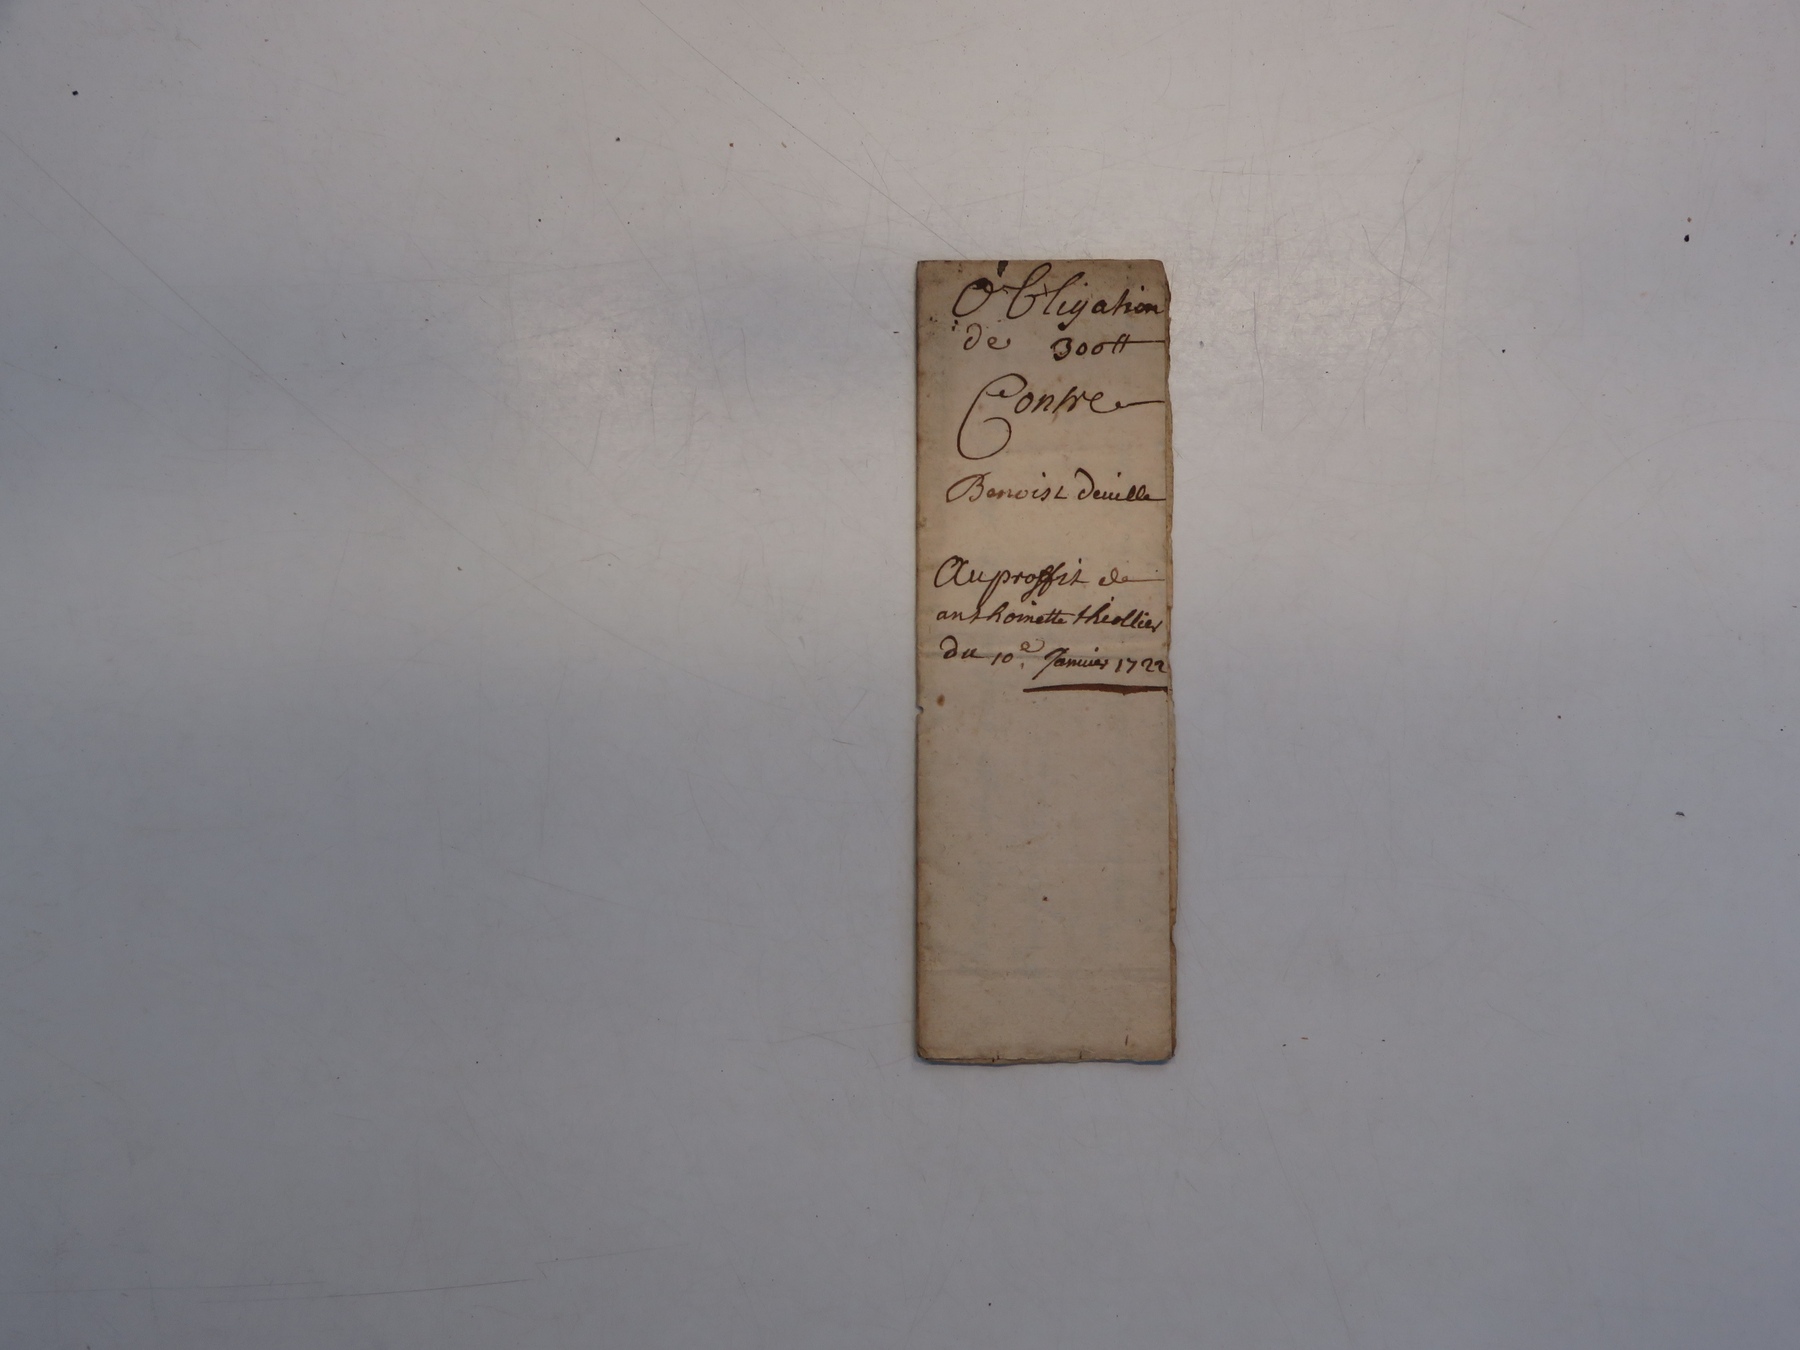 Obligation
de 300tt
Contre
Benoist deville
Au proffit de
anthoinette theollier
du 10e. Janvier 1722